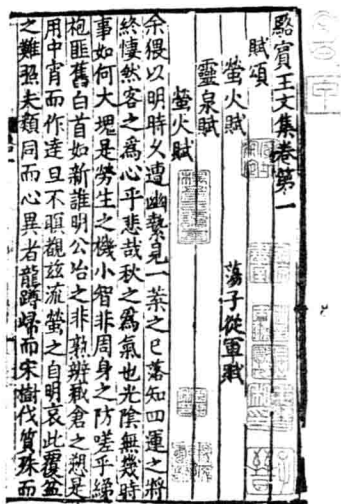 駱賓王文集卷第一
賦頌
螢火賦 蕩子從軍賦
靈泉賦
螢火賦
余猥以明時久遭幽縶見一葉之已落知四運之將
終悽然客之為心乎悲哉秋之為氣也光陰無幾時
事如何大塊是勞生之機小智非周身之防嗟乎綈
袍匪舊白首如新誰明公冶之非孰辨臧倉之愬是
用中宵而作達旦不瞑覩茲流螢之自明哀此覆盆
之難照夫類同而心異者龍蹲歸而宋樹伐質殊而